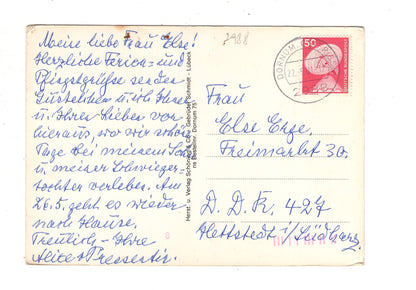 Meine liebe Frau Else!
Herzliche Ferien- und
Pfingstgrüße senden
Ihnen
u. Ihren Lieben von
hieraus, wo wir schöne
Tage bei meinem Sohn
u. meiner Schwieger-
tochter verleben. Am
26.5. geht es wieder
nach Hause.
Ihre
Herst. u. Verlag Schöning & Co + Gebrüder Schmidt · Lübeck
DORNUM
50
Frau
Else Enge
Freimarkt 30
D. D. R. 427
Hettstedt/Südharz